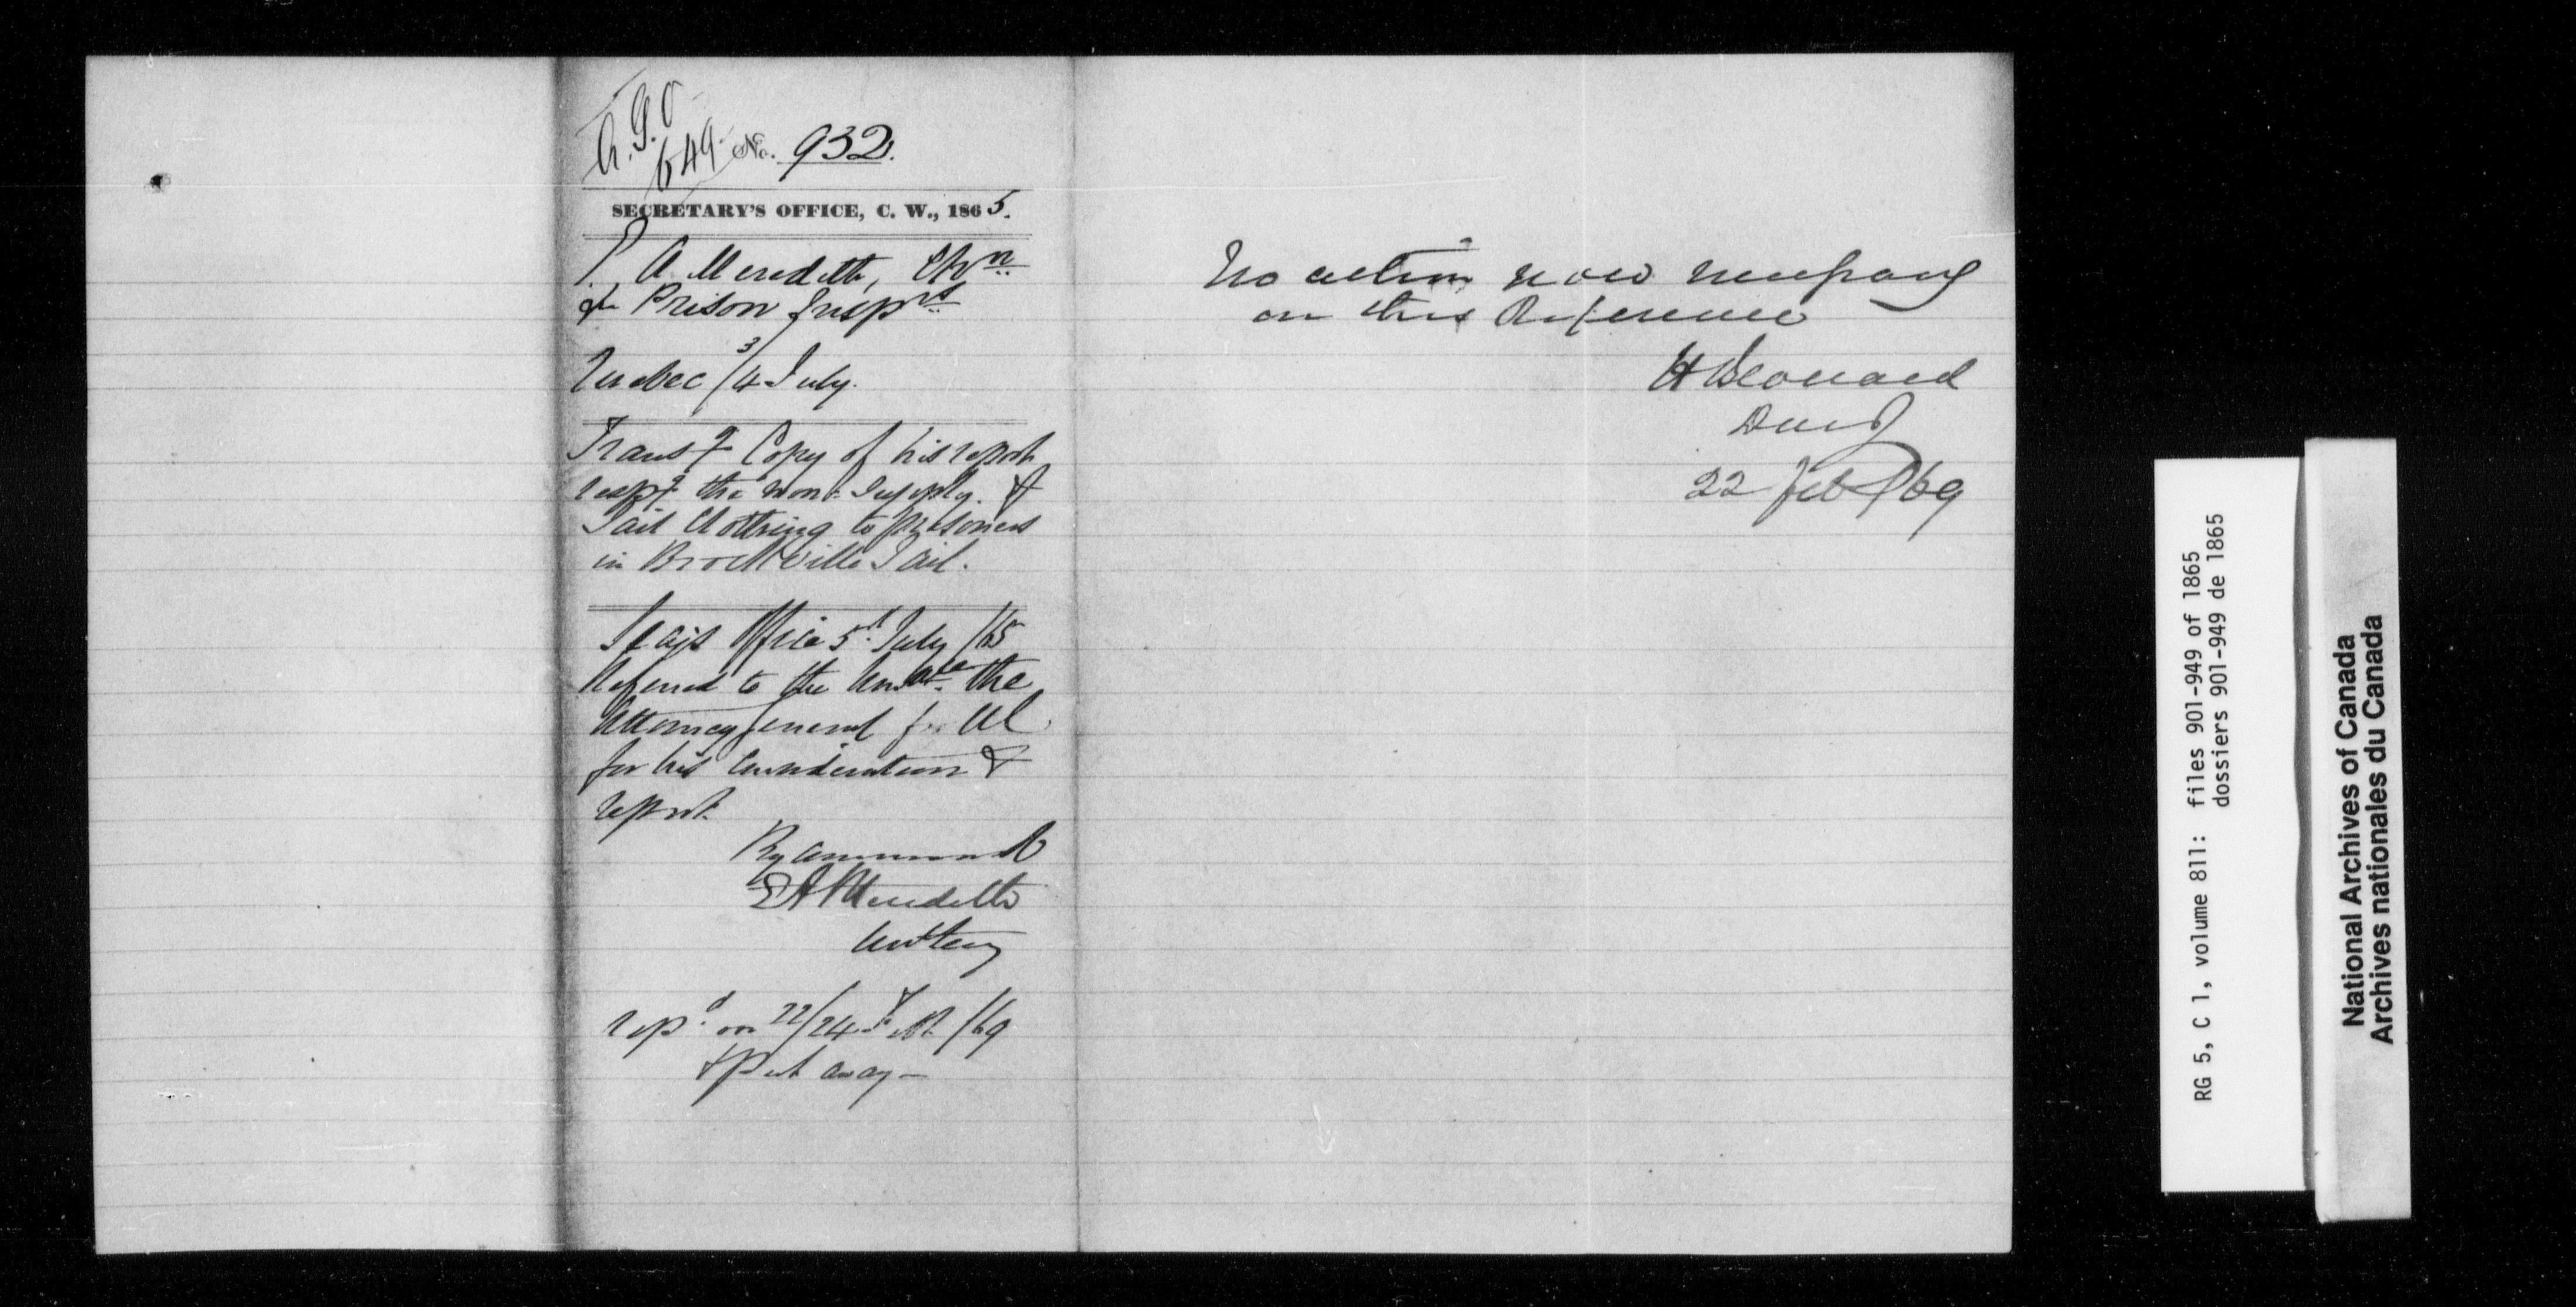 A.G.O
649
No. 932.
SECRETARY'S OFFICE, C. W., 1865.
A Meredith, Chn
of Prison Insprs
Quebec 3/4 July.
Transg Copy of his report
respg the non-supply of
Jail Clothing to prisoners
in Brockville Jail.
Secys Office 5th July /65
Referred to the Honble the
Attorney General for UC
for his Consideration &
report
By Command
E A Meredith
Asst Secy
repd on 22/24 Feb /69
& Put away —
No action now necessary
on this Reference
H Bernard
22 Feb /69
RG 5, C 1, volume 811: files 901-949 of 1865
dossiers 901-949 de 1865
National Archives of Canada
Archives nationales du Canada